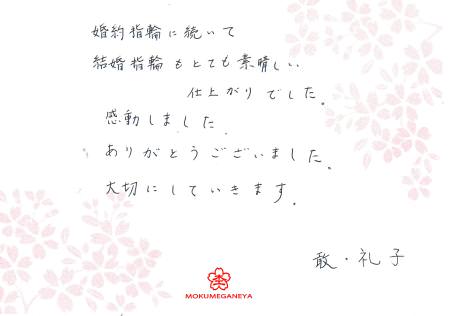 婚約指輪に続いて
結婚指輪もとても素晴しい
仕上がりでした。
感動しました。
ありがとうございました。
大切にしていきます。
敢・礼子
MOKUMEGANEYA